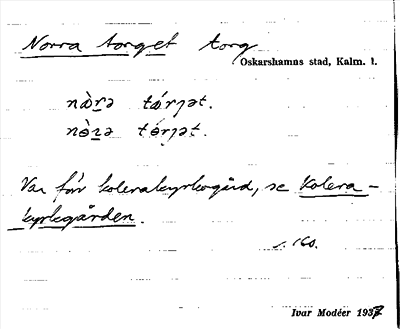 Norra torget torg
Oskarshamns stad, Kalm. l.
nὰrə tǿrjət.
nὸrə tǿrjət.
Var förr kolerakyrkogård, se Kolera-
kyrkogården.
s. 160.
Ivar Modéer 1937